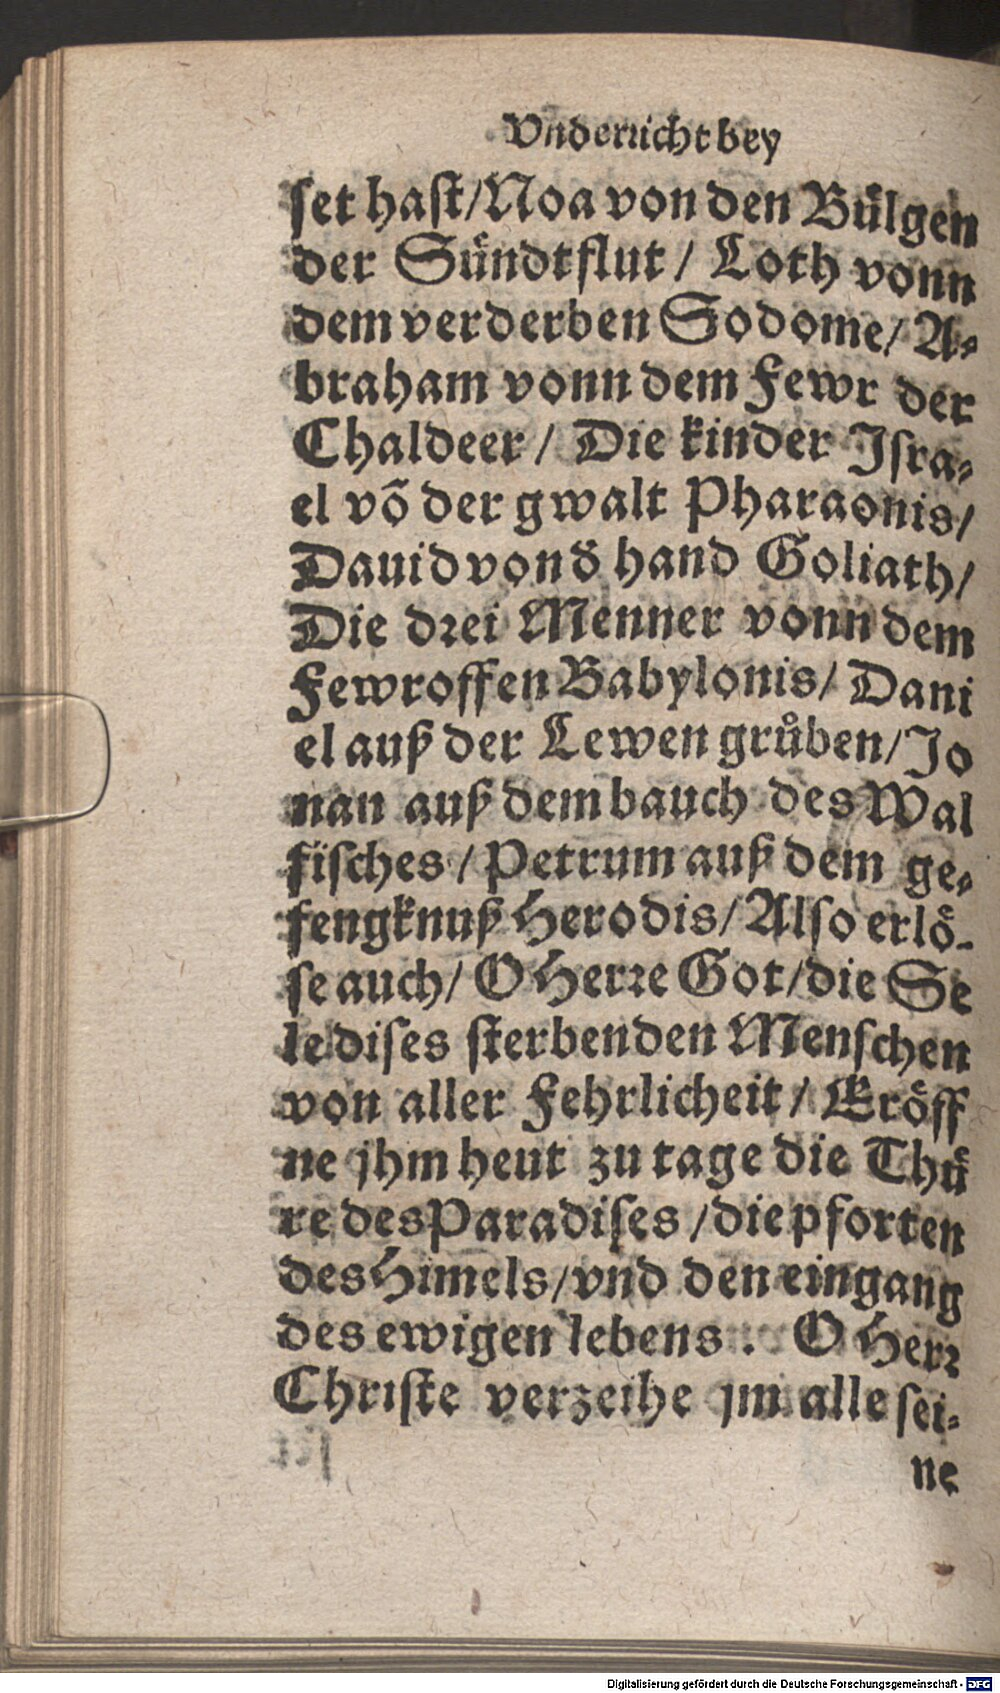 Vnderricht bey
ſet haſt/Noa von den Buͤlgen
der Suͤndtflut / Loth vonn
dem verderben Sodome/ A⸗
braham vonn dem Fewr der
Chaldeer / Die kinder Iſra⸗
el võ der gwalt Pharaonis/
Dauid von d̕ hand Goliath/
Die drei Menner vonn dem
Fewroffen Babylonis/ Dani
el auß der Lewen gruͦben/Jo
nan auß dem bauch des Wal
fiſches / Petrum auß dem ge⸗
fengknuß Herodis/ Alſo erloͤ⸗
ſe auch/ O Herre Got/die Se
le diſes ſterbenden Menſchen
von aller Fehrlicheit / Eroͤff
ne jhm heut zu tage die Thuͤ
re des Paradiſes /die pforten
des Himels/vnd den eingang
des ewigen lebens . O Herr
Chriſte verzeihe jm alle ſei⸗
ne
Digitalisierung gefördert durch die Deutsche Forschungsgemeinschaft - DFG